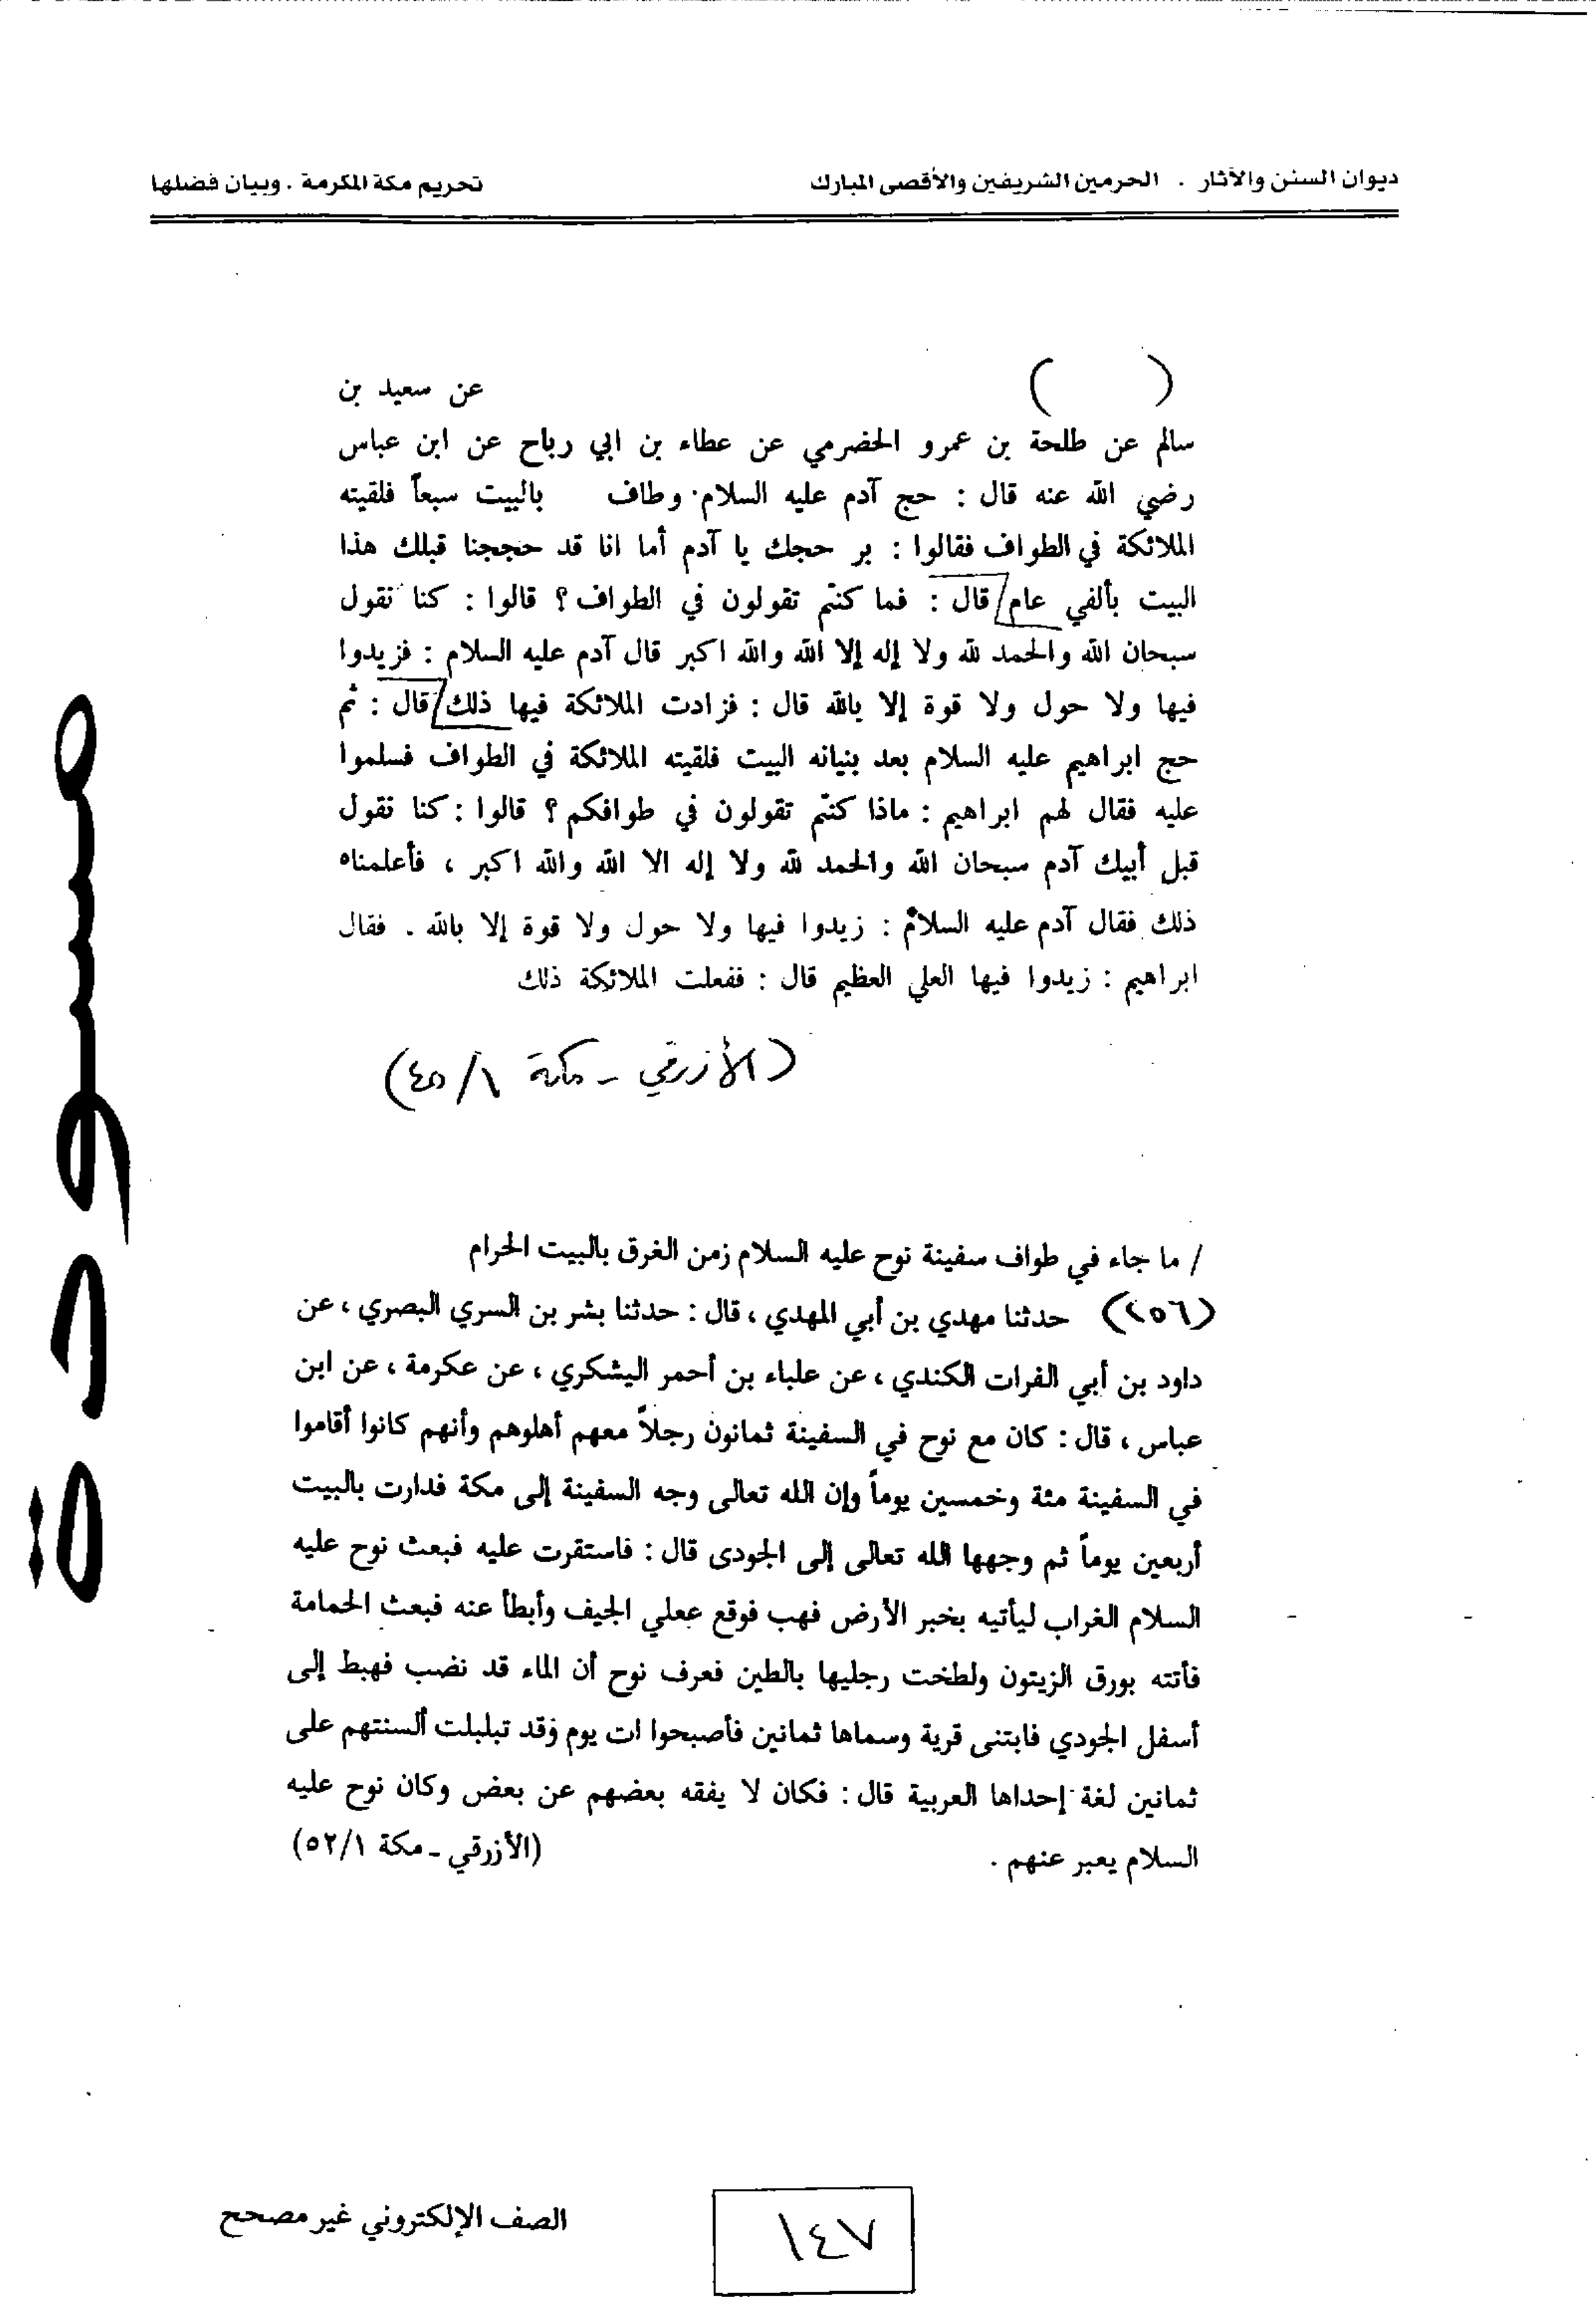 ديوان السنن والآثار . الحرمين الشريفين والأقصى المبارك
تحريم مكة المكرمة . وبيان فضلها
( ) عن سعيد بن
سالم عن طلحة بن عمرو الحضرمي عن عطاء بن ابي رباح عن ابن عباس
رضي الله عنه قال : حج آدم عليه السلام وطاف بالبيت سبعاً فلقيته
الملائكة في الطواف فقالوا : بر حجك يا آدم أما انا قد حججنا قبلك هذا
البيت بألفي عام/قال : فما كنتم تقولون في الطواف؟ قالوا : كنا نقول
سبحان الله والحمد لله ولا إله إلا الله والله اكبر قال آدم عليه السلام : فزيدوا
فيها ولا حول ولا قوة إلا بالله قال : فزادت الملائكة فيها ذلك/قال : ثم
حج ابراهيم عليه السلام بعد بنيانه البيت فلقيته الملائكة في الطواف فسلموا
عليه فقال لهم ابراهيم : ماذا كنتم تقولون في طوافكم؟ قالوا : كنا نقول
قبل أبيك آدم سبحان الله والحمد لله ولا إله الا الله والله اكبر ، فأعلمناه
ذلك فقال آدم عليه السلام : زيدوا فيها ولا حول ولا قوة إلا بالله . فقال
ابراهيم : زيدوا فيها العلي العظيم قال : ففعلت الملائكة ذلك
(الأزرقي - مكة ١/٤٥)
/ ما جاء في طواف سفينة نوح عليه السلام زمن الغرق بالبيت الحرام
(٢٥٦) حدثنا مهدي بن أبي المهدي ، قال : حدثنا بشر بن السري البصري ، عن
داود بن أبي الفرات الكندي ، عن علباء بن أحمر اليشكري ، عن عكرمة ، عن ابن
عباس ، قال : كان مع نوح في السفينة ثمانون رجلاً معهم أهلوهم وأنهم كانوا أقاموا
في السفينة مئة وخمسين يوماً وإن الله تعالى وجه السفينة إلى مكة فدارت بالبيت
أربعين يوماً ثم وجهها الله تعالى إلى الجودى قال : فاستقرت عليه فبعث نوح عليه
السلام الغراب ليأتيه بخبر الأرض فهب فوقع عملي الجيف وأبطأ عنه فبعث الحمامة
فأتته بورق الزيتون ولطخت رجليها بالطين فعرف نوح أن الماء قد نضب فهبط إلى
أسفل الجودي فابتنى قرية وسماها ثمانين فأصبحوا ات يوم وقد تبلبلت ألسنتهم على
ثمانين لغة إحداها العربية قال : فكان لا يفقه بعضهم عن بعض وكان نوح عليه
السلام يعبر عنهم . (الأزرقي - مكة ١/٥٢)
مسودة
١٤٧
الصف الإلكتروني غير مصحح